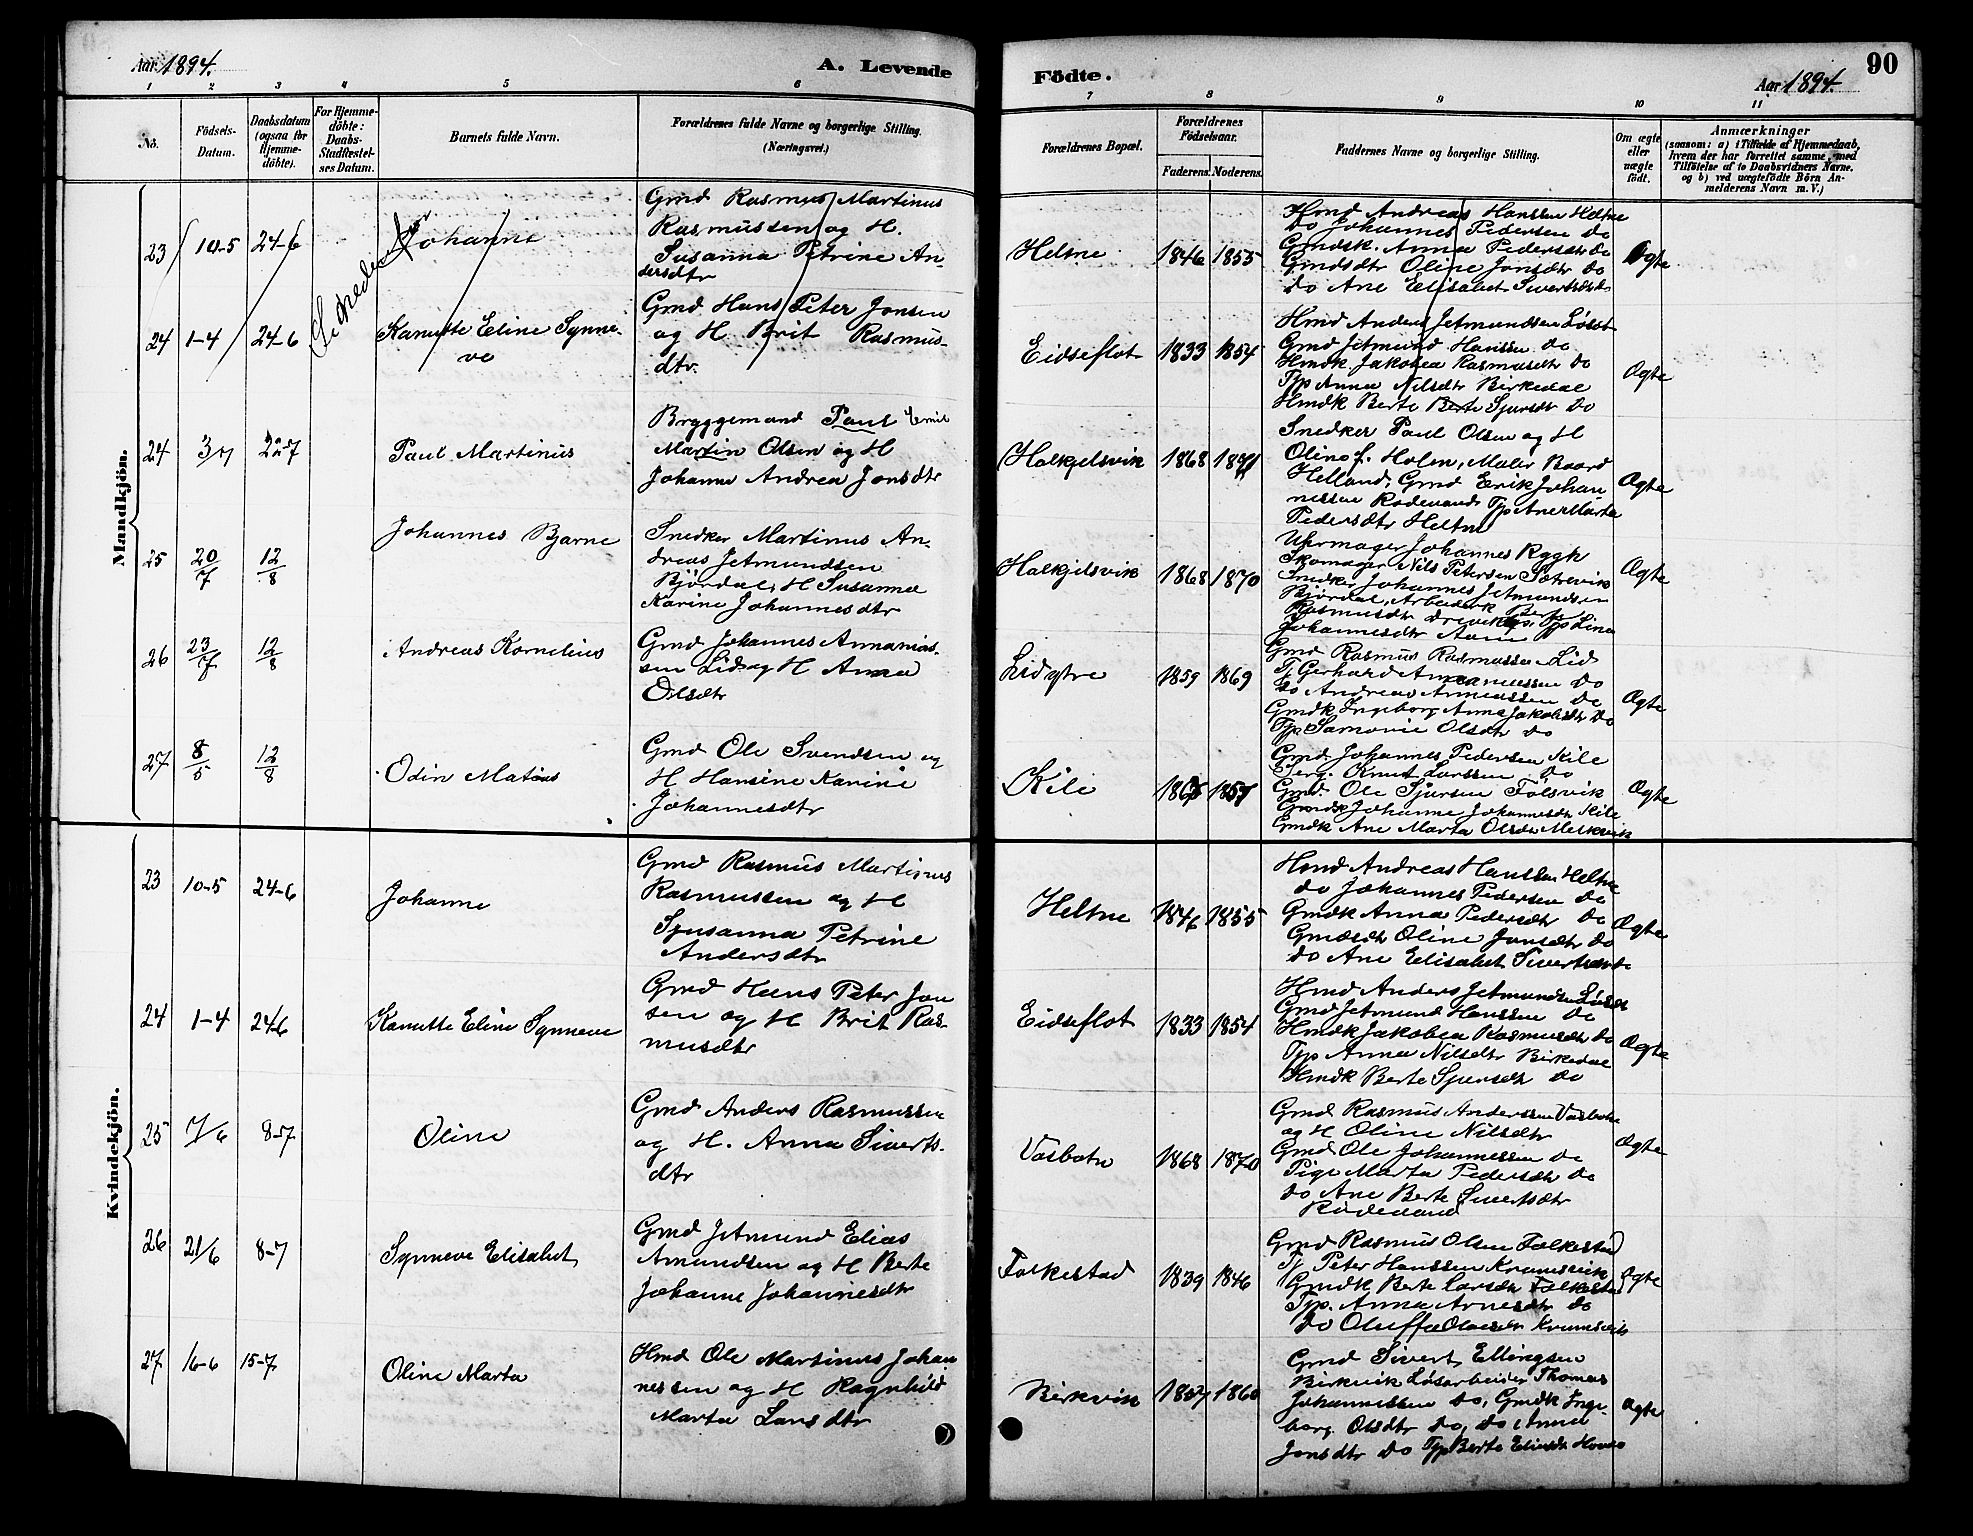 Aar 1894.
A. Levende
Födte.
Aar 1894.
90
1 2 3 4 5 6 7 8 9 10 11
No.
Födsels-
Datum.
Daabsdatum
(ogsaa for
Hjemme-
döbte).
For Hjemme-
döbte:
Daabs-
Stadfæstel-
ses Datum.
Barnets fulde Navn.
Forældrenes fulde Navne og borgerlige Stilling.
(Næringsvei.)
Forældrenes Bopæl.
Forældrenes
Födselsaar.
Faderens. Moderens.
Faddernes Navne og borgerlige Stilling.
Om ægte
eller
uægte
födt.
Anmærkninger
(saasom: a) i Tilfælde af Hjemmedaab,
hvem der har forrettet samme, med
Tilföielse af to Daabsvidners Navne,
og b) ved uægtefödte Börn An-
melderens Navn m. V.)
Mandkjön.
23 10-5 24-6
Johanne
Gmd Rasmus Martinus
Rasmussen og H.
Susanna Petrine An-
dersdtr
Heltne
1846 1855
Hmd Andreas Hanssen Heltne
Do Johannes Pedersen do
Gmdsk. Anna Pedersdtr Do
Gmdsdtr Oline Jonsdtr do
do Ane Elisabet Sivertsdtr
Ægte
Se nedenfor
24 1-4 24-6
Kanutte Eline Synne-
ve
Gmd Hans Peter Jonsen
og H Brit Rasmus-
dtr.
Eidseflot
1833 1854
Hmd Anders Jetmundsen
Gmd Jetmund Hanssen do
Hmdk Jakobea Rasmusdtr do
Typ Anna Nilsdtr Birkedal
Hmdk Berte Berte Sjursdtr do
Ægte
24 3/7 22-7
Paul Martinus
Bryggemand Paul Emil
Martin Olsen og H
Johanne Andrea Jonsdtr
Halkjelsvik
1868 1871
Snedker Paul Olsen og H
Oline f. Holen, Maler Baard
Helland, Gmd Erik Johan
nessen Rødesand Typ Ane Marta
Pedersdtr Heltne
Ægte
25 20/7 12/8
Johannes Bjarne
Snedker Martinus An-
dreas Jetmundsen
Bjørdal, H Susanna
Karine Johannesdtr
Halkjelsvik
1868 1870
Uhrmager Johannes Rygh
Skomager Nils Petersen Sætrevik
Snedker Johannes Jetmundsen
Bjørdal, Arbeiderk Berte
Rasmusdtr Typ Lina
Johannesdtr
Ægte
26 23/7 12/8
Andreas Kornelius
Gmd Johannes Annanias-
sen Lid og H Anna
Olsdtr
Lidytre
1859 1869
Gmd Rasmus Rasmussen Lid
Tj Gerhard Do
Do Andreas Do
Gmdk Ingeborg Anna Jakobsdtr Do
Typ Olsdtr do
Ægte
27 8/5 12/8
Odin Matias
Gmd Ole Svendsen og
H Hansine Karine
Johannesdtr
Kile
1865 1857
Gmd Johannes Pedersen Kile
Serg. Knut Larssen do
Gmd. Ole Sjursen Følsvik
Gmdsk Johanne Johannesdtr Kile
Gmdk Ane Marta Olsdtr Melkevik
Ægte
Kvindekjön.
23 10-5 24-6
Johanne
Gmd Rasmus Martinus
Rasmussen og H
Susanna Petrine
Andersdtr
Heltne
1846 1855
Hmd Andreas Hanssen Heltne
do Johannes Pedersen do
Gmdk Anna Pedersdtr do
Gmdsdtr Oline Jonsdtr do
do Ane Elisabet Sivertsdtr do
Ægte
24 1-4 24-6
Kanutte Eline Synneve
Gmd Hans Peter Jon
sen og H Brit Ras-
musdtr
Eidseflot
1833 1854
Hmd Anders Jetmundsen
Gmd Jetmund Hanssen do
Hmdk Jakobea Rasmusdtr do
Typ Anna Nilsdtr Birkedal
Hmdk Berte Sjursdtr do
Ægte
25 7/6 8-7
Oline
Gmd Anders Rasmussen
og H. Anna Siverts-
dtr
Vasbotn
1868 1870
Gmd Rasmus Anderssen Vasbotn
og H Oline Nilsdtr
Gmd Ole Johannessen do
Pige Marta Pedersdtr do
do Ane Berte Sivertsdtr
Rødesand
Ægte
26 21/6 8-7
Synneve Elisabet
Gmd Jetmund Elias
Amundsen og H Berte
Johanne Johannesdtr
Folkestad
1839 1846
Gmd Rasmus Olsen Folkestad
Tj Peter Hanssen Krumsvik
Gmdk Berte Larsdtr Folkestad
Typ. Anna Arnesdtr do
do Oluffa Olsdtr Krumsvik
Ægte
27 16-6 15-7
Oline Marta
Hmd Ole Martinus Johan
nessen og H Ragnhild
Marta Larsdtr
Birkvik
1857 1860
Gmd Sivert Ellingsen
Birkvik Løsarbeider Thomas
Johannessen do, Gmdk Inge-
borg Olsdtr do, do Anna
Jonsdtr do Typ Berte Eliasdtr
Ægte